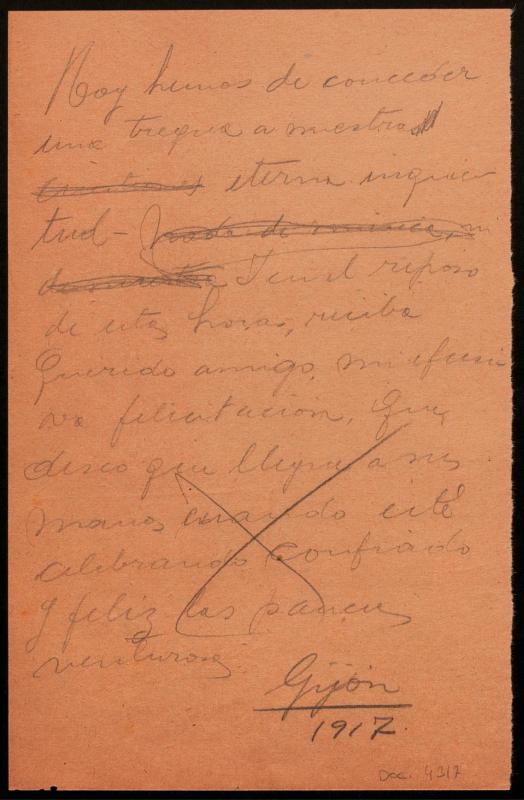 Hoy hemos de conceder
una tregua a nuestra
eterna inquie
tud – nada de música, ni
de nuestra Y en el reposo
de estas horas, reciba
Querido amigo, mi efusi
va felicitación, que
deseo que llegue a sus
manos cuando esté
celebrando confiado
y feliz las pascuas
venturosas.
Gijón
1917.
Doc. 4317